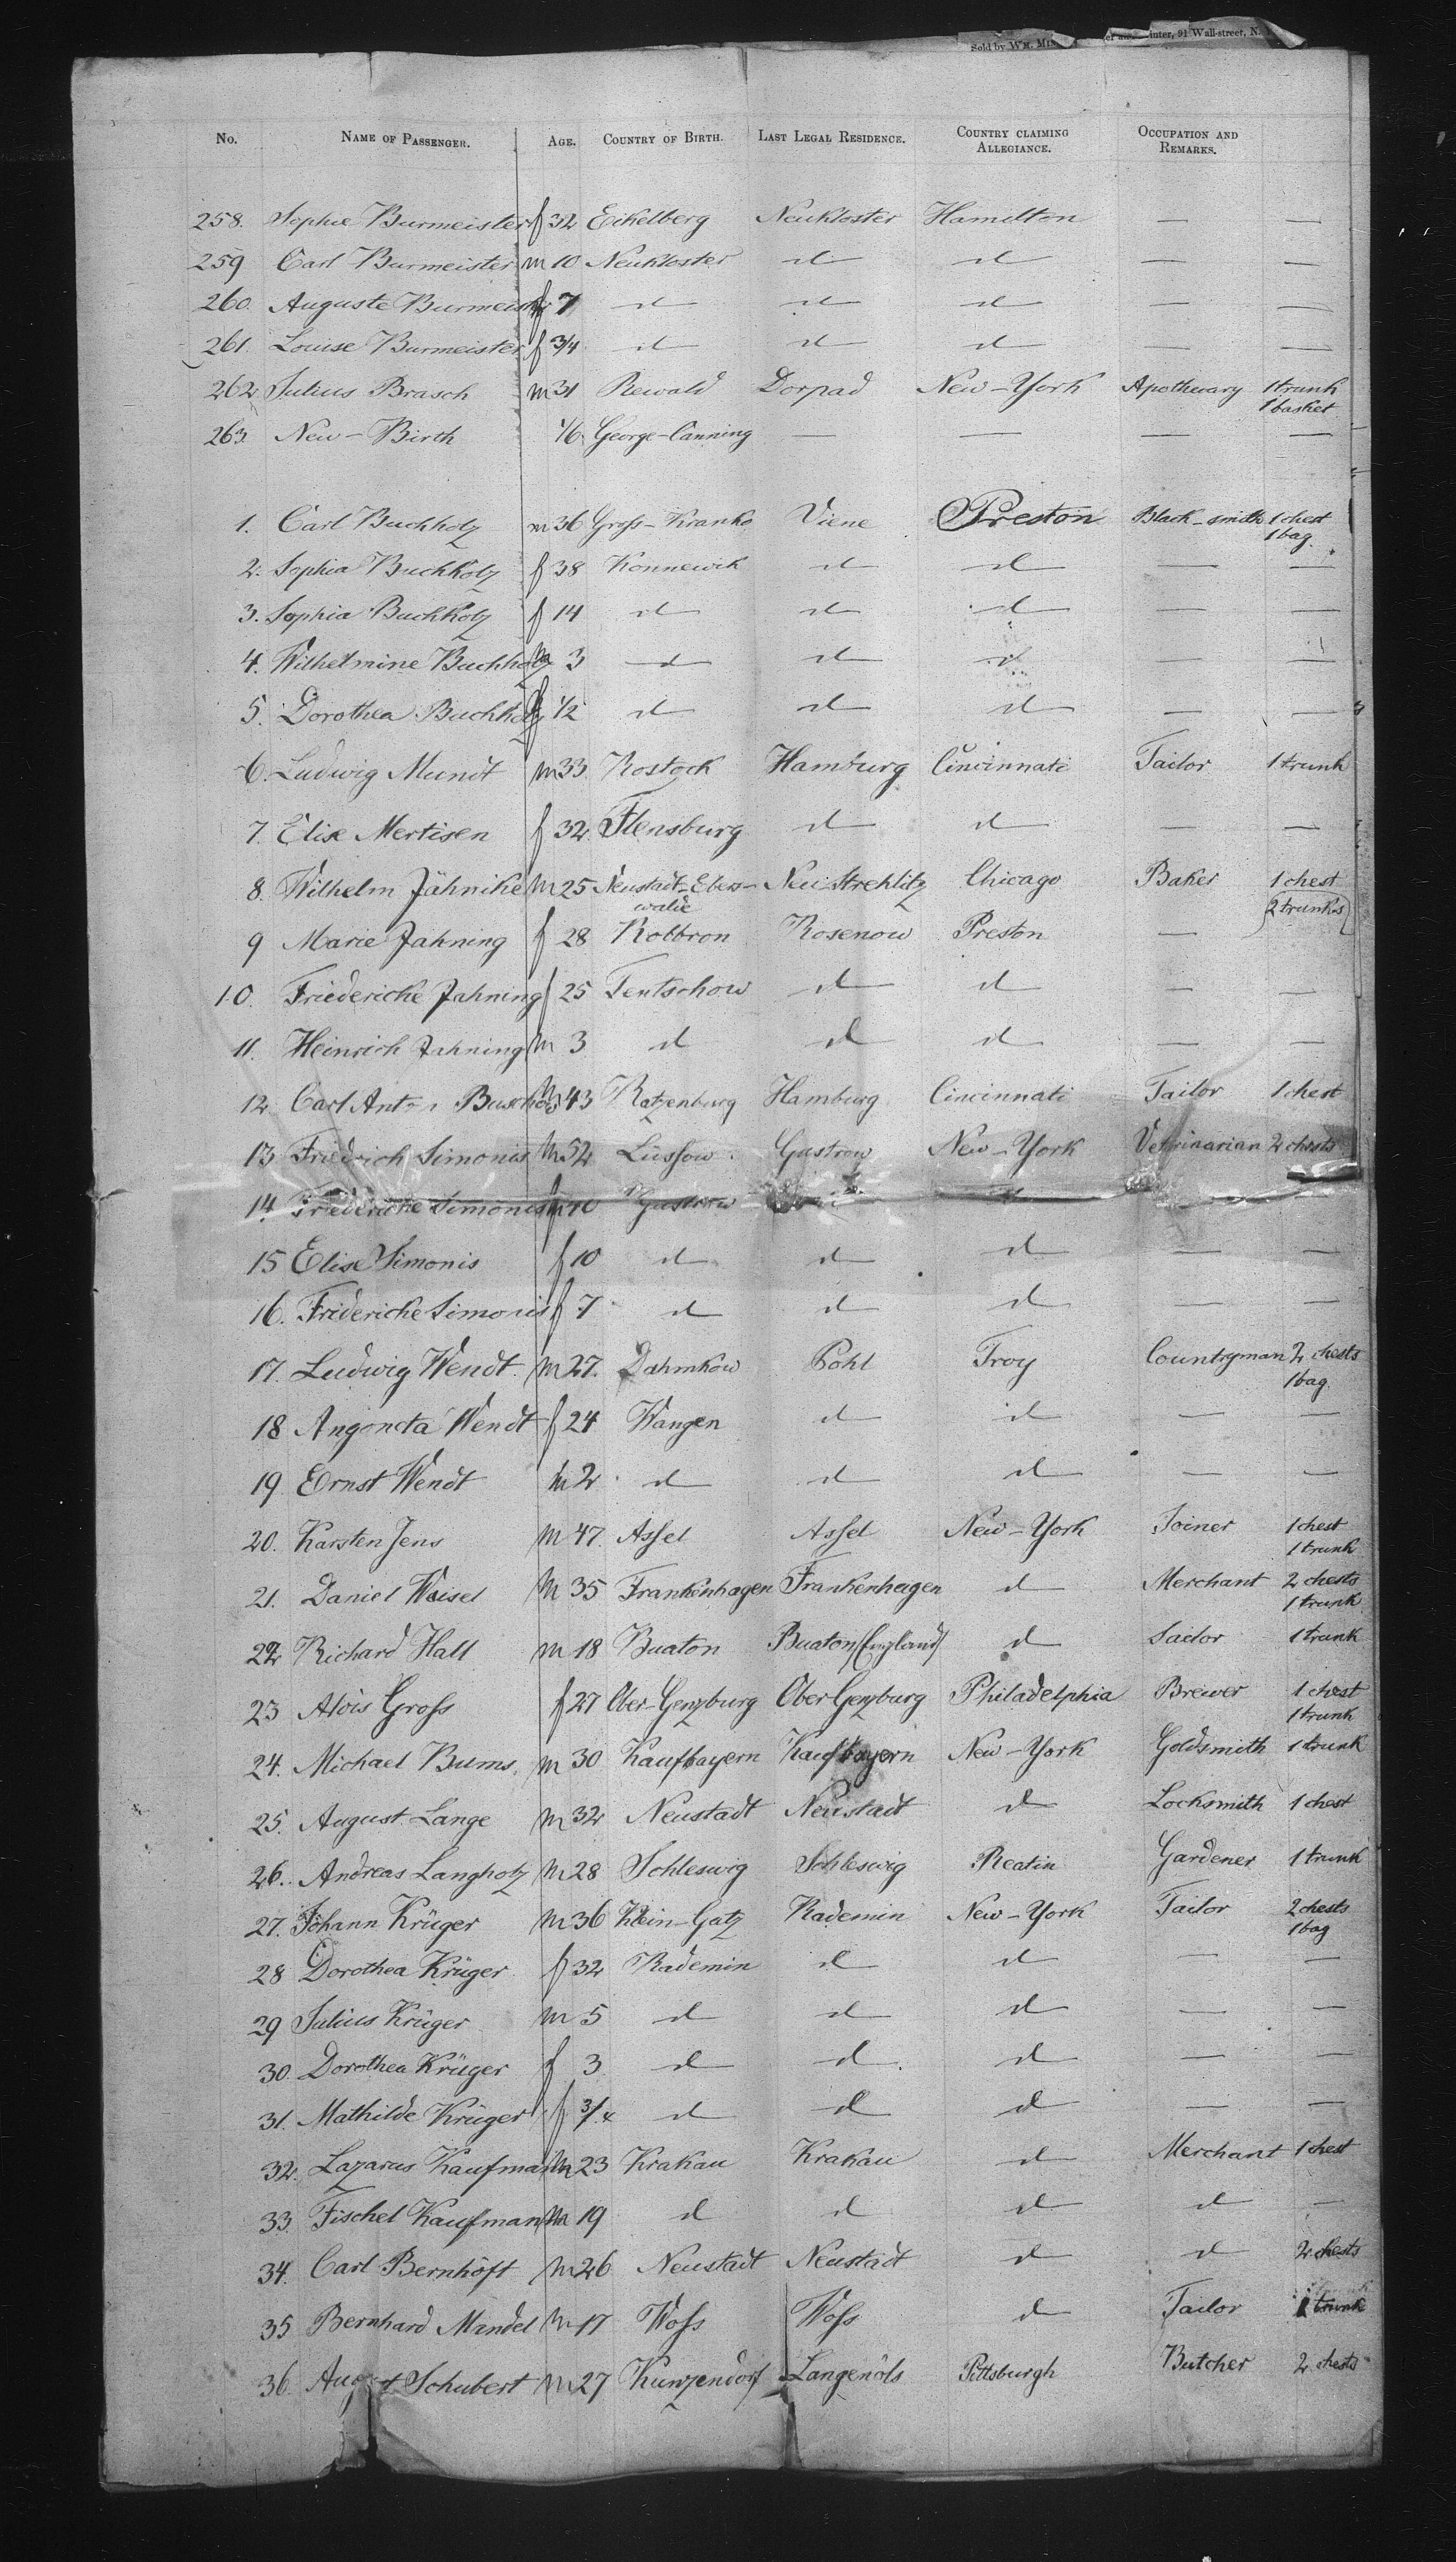 Sold by Wm. inter, 91 Wall-street, N.
No. Name of Passenger. Age. Country of Birth. Last Legal Residence. Country claiming Allegiance. Occupation and Remarks.
258. Sophie Burmeister f 32 Eikelberg Neukloster Hamilton — —
259 Carl Burmeister m 10 Neukloster d d — —
260. Auguste Burmeister f 7 d d d — —
261. Louise Burmeister f 3/4 d d d — —
262 Julius Brasch m 31 Rewald Dorpad New-York Apothecary 1 trunk
1 basket
263 New-Birth 1/6 George-Canning — — — —
1. Carl Buchholz m 36 Gross-Kranko Viene Preston Black-smith 1 chest
1 bag.
2. Sophia Buchholz f 38 Konnewik d d — —
3. Sophia Buchholz f 14 d d d — —
4. Wilhelmine Buchholz m 3 d d d — —
5. Dorothea Buchholz f 1/2 d d d — —
6. Ludwig Mundt m 33 Rostock Hamburg Cincinnati Tailor 1 trunk
7. Elise Mertisen f 32 Flensburg d d — —
8. Wilhelm Jähnike m 25 Neustadt-Ebers- Neu Strehlitz Chicago Baker 1 chest
walde 2 trunks
9 Marie Jahning f 28 Robbron Rosenow Preston —
10. Friedericke Jahning f 25 Tentschow d d — —
11. Heinrich Jahning m 3 d d d — —
12 Carl Ant m 43 Ratzenburg Hamburg Cincinnati Tailor 1 chest
13 Friedrich Simonis m 52 Lüssow Gustrow New-York Veterinarian 2 chests
14. Friedericke Simonis 40 Gustrow
15 Elise Simonis f 10 d d d — —
16. Fridericke Simonis f 7 d d d — —
17. Ludwig Wendt m 27. Dahmkow Pohl Troy Countryman 2 chests
1 bag
18 Angoneta Wendt f 24 Wangen d d — —
19. Ernst Wendt m 2 d d d — —
20. Karsten Jens m 47. Assel Assel New-York Joiner 1 chest
1 trunk
21. Daniel Weisel m 35 Frankenhagen Frankenhagen d Merchant 2 chests
1 trunk
22 Richard Hall m 18 Buaton Buaton (England) d Sailor 1 trunk
23 Alois Gross f 27 Ober-Genzburg Ober Genzburg Philadelphia Brewer 1 chest
1 trunk
24. Michael Bums m 30 Kaufbayern Kaufbayern New-York Goldsmith 1 trunk
25. August Lange m 32 Neustadt Neustadt d Locksmith 1 chest
26. Andreas Langholz m 28 Schleswig Schleswig Reatin Gardener 1 trunk
27. Johann Krüger m 36 Klein-Gatz Rademin New-York Tailor 2 chests
1 bag
28 Dorothea Krüger f 32 Rademin d d — —
29 Julius Krüger m 5 d d d — —
30. Dorothea Krüger f 3 d d d — —
31. Mathilde Krüger f 3/4 d d d — —
32. Lazarus Kaufmann m 23 Krakau Krakau d Merchant 1 chest
33. Fischel Kaufmann m 19 d d d d —
34. Carl Bernhöft m 26 Neustadt Neustadt d d 2 chests
35 Bernhard Mandel m 17 Woss Woss d Tailor 1 trunk
36. August Schubert m 27 Kunzendorf Langenöls Pittsburgh Butcher 2 chests